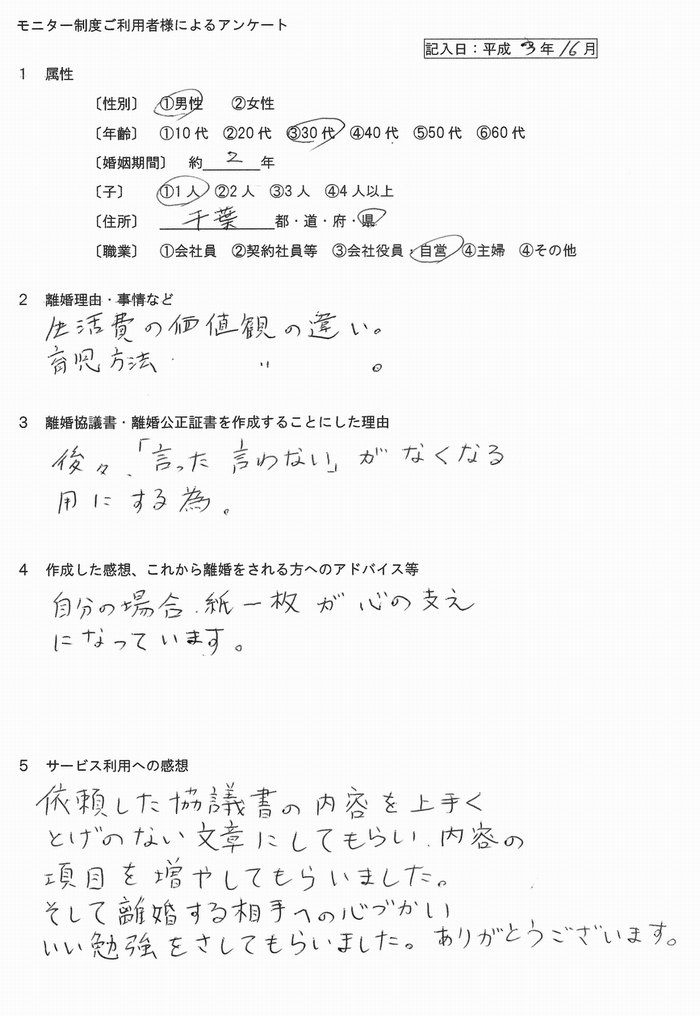 モニター制度ご利用者様によるアンケート
記入日：平成 3年 16月
1 属性
〔性別〕 ①男性 ②女性
〔年齢〕 ①10代 ②20代 ③30代 ④40代 ⑤50代 ⑥60代
〔婚姻期間〕 約 2 年
〔子〕 ①1人 ②2人 ③3人 ④4人以上
〔住所〕 千葉 都・道・府・県
〔職業〕 ①会社員 ②契約社員等 ③会社役員・自営 ④主婦 ④その他
2 離婚理由・事情など
生活費の価値観の違い。
育児方法 〃 。
3 離婚協議書・離婚公正証書を作成することにした理由
後々、「言った 言わない」が なくなる
用に する為。
4 作成した感想、これから離婚をされる方へのアドバイス等
自分の場合、紙一枚が 心の支え
になっています。
5 サービス利用への感想
依頼した協議書の内容を上手く
とげのない文章にしてもらい、内容の
項目を増やしてもらいました。
そして離婚する相手への心づかい
いい勉強をさしてもらいました。ありがとうございます。